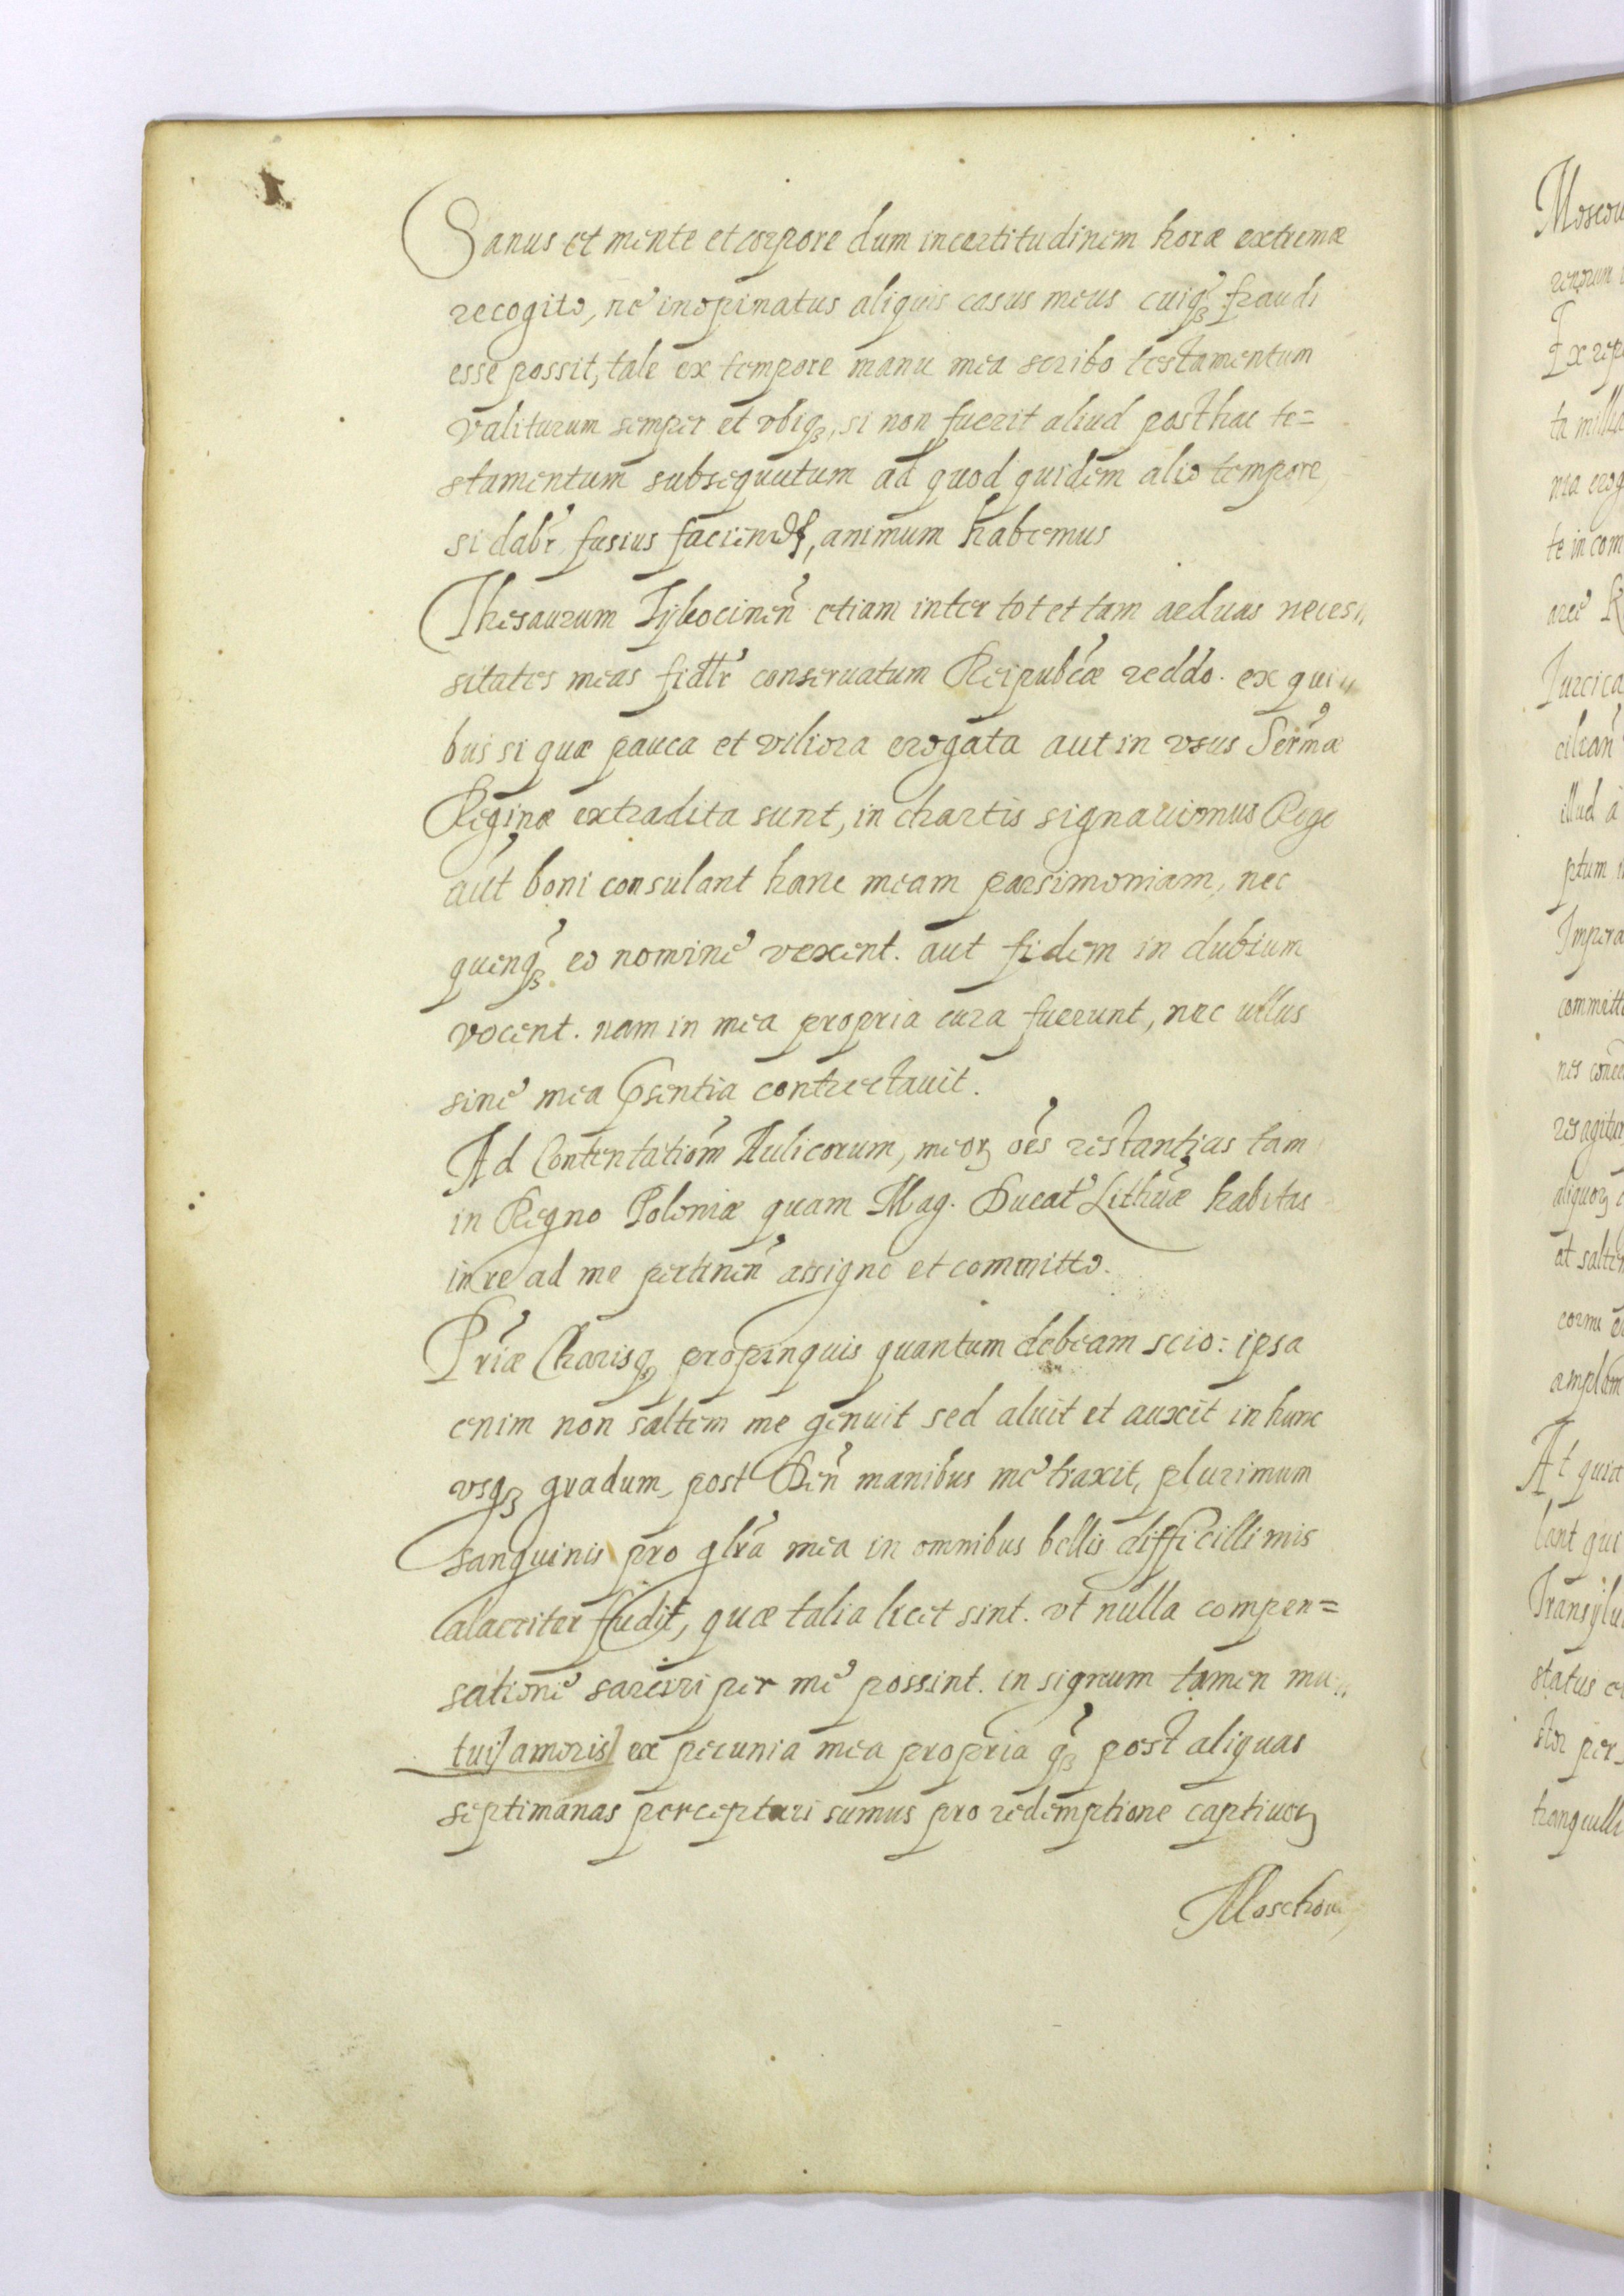 Sanus et mente et corpore dum incertitudinem horæ extremæ
recogito, ne inopinatus aliquis casus meus cuiqꝫ fraudi
esse possit, tale ex tempore manu mea scribo testamentum
valiturum semper et vbiqꝫ, si non fuerit aliud posthac te=
stamentum subsequutum ad quod quidem alio tempore,
si dabr̃ fusius faciend, animum habemus
Thesaurum Tykocinen̄ etiam inter tot et tam arduas neces,,
sitates meas fidlr̃ conseruatum Reipubcæ reddo. ex qui,,
bus si quæ pauca et viliora erogata aut in vsus Sermæ
Reginæ extradita sunt, in chartis signauimus Rege
aut boni consulant hanc meam parsimoniam, nec
quenqꝫ eo nomine vexent. aut fidem in dubium
vocent. nam in mea propria cura fuerunt, nec ullus
sine mea p̃sentia contrectauit.
Ad Contentatiom̄ Aulicorum, meoꝝ oēs restantias tam
in Regno Poloniæ quam Mag. Ducat Lithuæ habitas
in re ad me pertinen̄ assigno et committo.
Priæ Charisqꝫ propinquis quantum debeam scio: ipsa
enim non saltem me genuit sed aluit et auxit in hunc
vsqꝫ gradum, post Deū manibus me traxit, plurimum
sanguinis pro glrã mea in omnibus bellis difficillimis
alacriter fudit, quæ talia licet sint. vt nulla compen=
satione sarciri per me possint. in signum tamen mu,,
tui] amoris] ex pecunia mea propria qꝫ post aliquas
septimanas percepturi sumus pro redemptione captiuoꝝ
Moschou